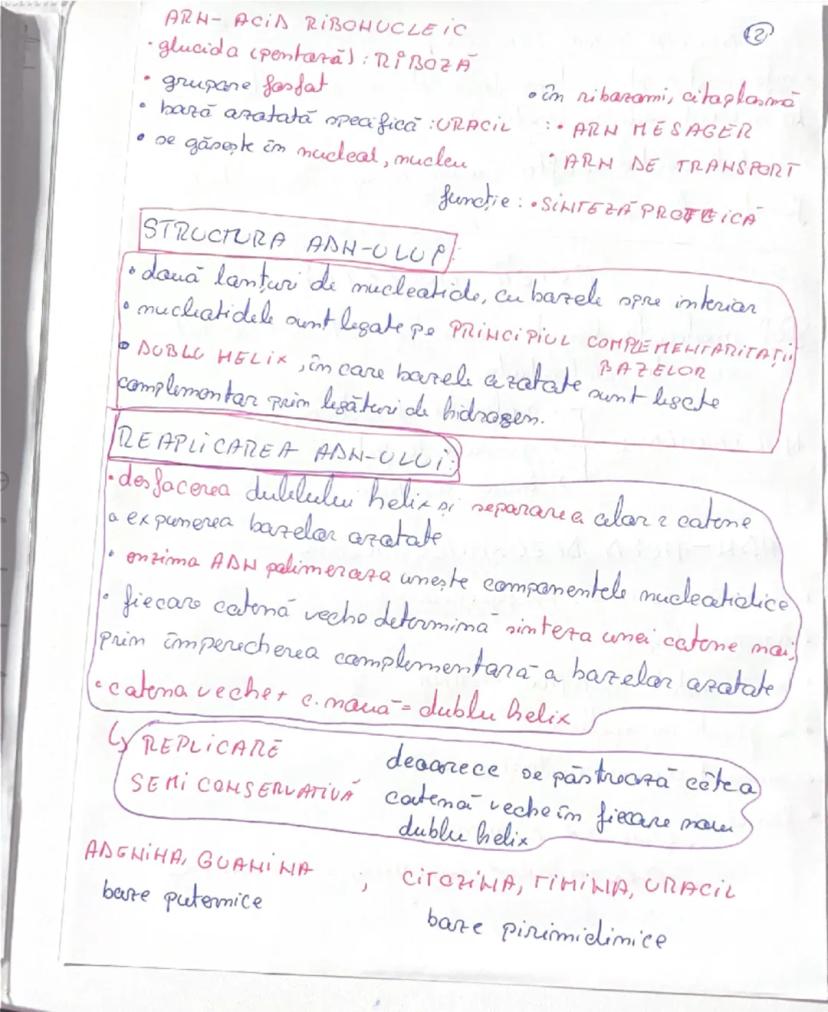 2
ARN- ACID RIBONUCLEIC
• glucida (pentoză): RIBOZĂ
• grupare fosfat
• bază azotată specifică: URACIL
• se găsește în nucleol, nucleu
• în ribozomi, citoplasmă
: • ARN MESAGER
• ARN DE TRANSPORT
funcție: • SINTEZĂ PROTEICĂ
STRUCTURA ADN-ULUI:
• două lanțuri de nucleotide, cu bazele spre interior
• nucleotidele sunt legate pe PRINCIPIUL COMPLEMENTARITĂȚII
BAZELOR
• DUBLU HELIX, în care bazele azotate sunt legate
complementar prin legături de hidrogen.
REAPLICAREA ADN-ULUI:
• desfacerea dublului helix și separarea celor 2 catene
• expunerea bazelor azotate
• enzima ADN polimeraza unește componentele nucleotidice
• fiecare catenă veche determină sinteza unei catene noi,
prin împerecherea complementară a bazelor azotate
• catena veche + c. nouă = dublu helix
↳ REPLICARE
SEMICONSERVATIVĂ
deoarece se păstrează câte o
catenă veche în fiecare nou
dublu helix
ADENINA, GUANINA ; CITOZINA, TIMINA, URACIL
baze puternice
baze pirimidinice